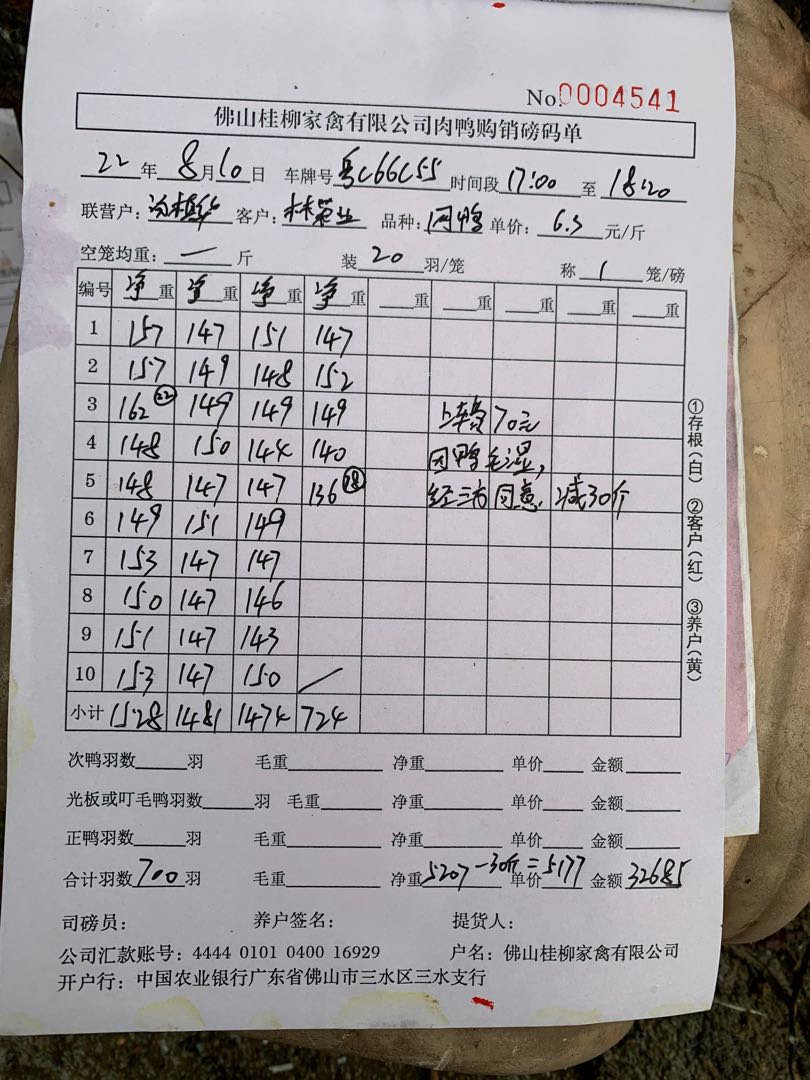 No. 0004541
佛山桂柳家禽有限公司肉鸭购销磅码单
22 年 8 月 10 日 车牌号 粤C66C55 时间段 17:00 至 18:20
联营户： 客户：林荣业 品种： 单价：6.3 元/斤
空笼均重：一 斤 装 20 羽/笼 称 1 笼/磅
编号 净重 净重 净重 净重 重 重 重 重 重
1 157 147 151 147
2 157 149 148 152
3 162 (22) 149 149 149 上车费70元
4 148 150 144 140 因鸭毛湿，
5 148 147 147 136 (18) 经三方同意，减30斤
6 149 151 149
7 153 147 147
8 150 147 146
9 151 147 143
10 153 147 150 /
小计 1528 1481 1474 724
①存根(白) ②客户(红) ③养户(黄)
次鸭羽数 羽 毛重 净重 单价 金额
光板或叮毛鸭羽数 羽 毛重 净重 单价 金额
正鸭羽数 羽 毛重 净重 单价 金额
合计羽数 700 羽 毛重 净重 5207-30斤=5177 单价 金额 32685
司磅员： 养户签名： 提货人：
公司汇款账号：4444 0101 0400 16929 户名：佛山桂柳家禽有限公司
开户行：中国农业银行广东省佛山市三水区三水支行